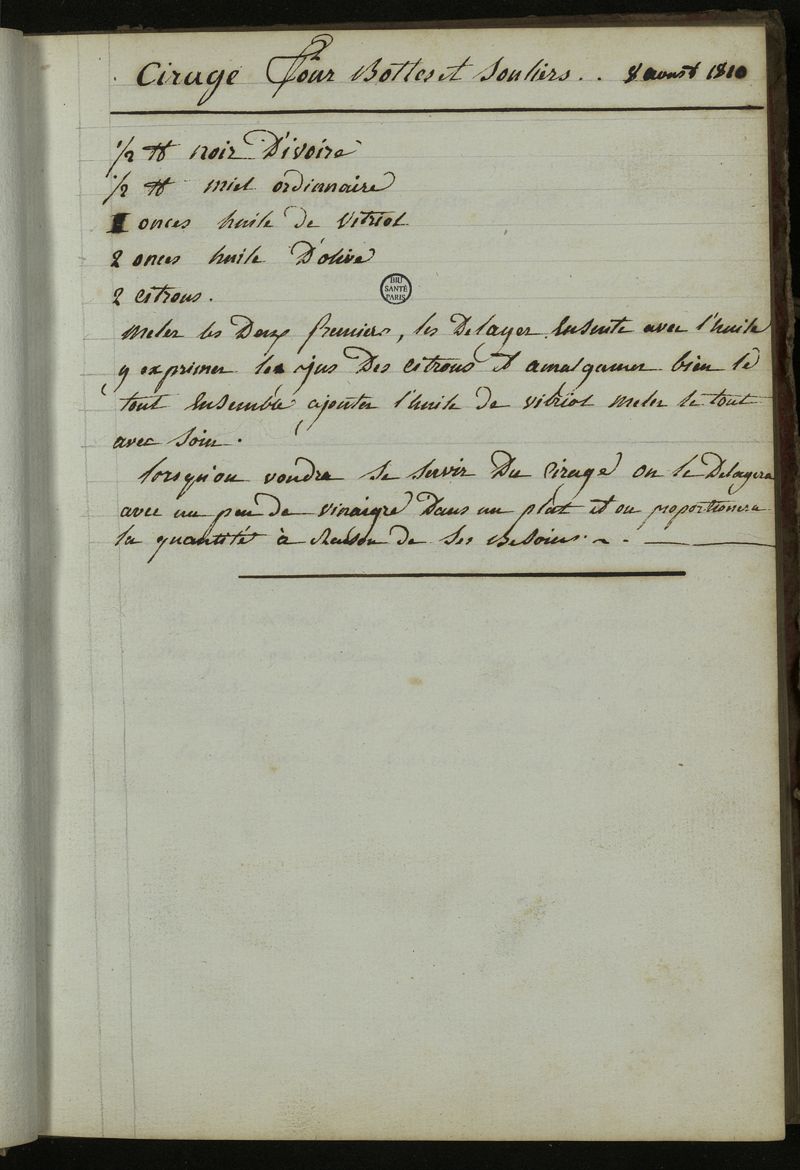 Cirage Pour Bottes et Souliers .. 8 aoust 1810
1/2 ℔ noir D'ivoire
1/2 ℔ miel ordianaire
onces huile de Vitriol
2 onces huile D'olive
2 citrons.
BIU
SANTÉ
PARIS
meler les Deux premiers, les Delayer Ensuite avec l'huile
y exprimer les jus Des citrons et amalgamer bien le
tout Ensemble, ajouter l'huile de vitriol meler le tout
avec soin.
lorsqu'on voudra se servir Du Cirage on le Delayera
avec un peu de vinaigre Dans un plat et on proportionera
la quantité à Raison de ses Besoins. ~ .